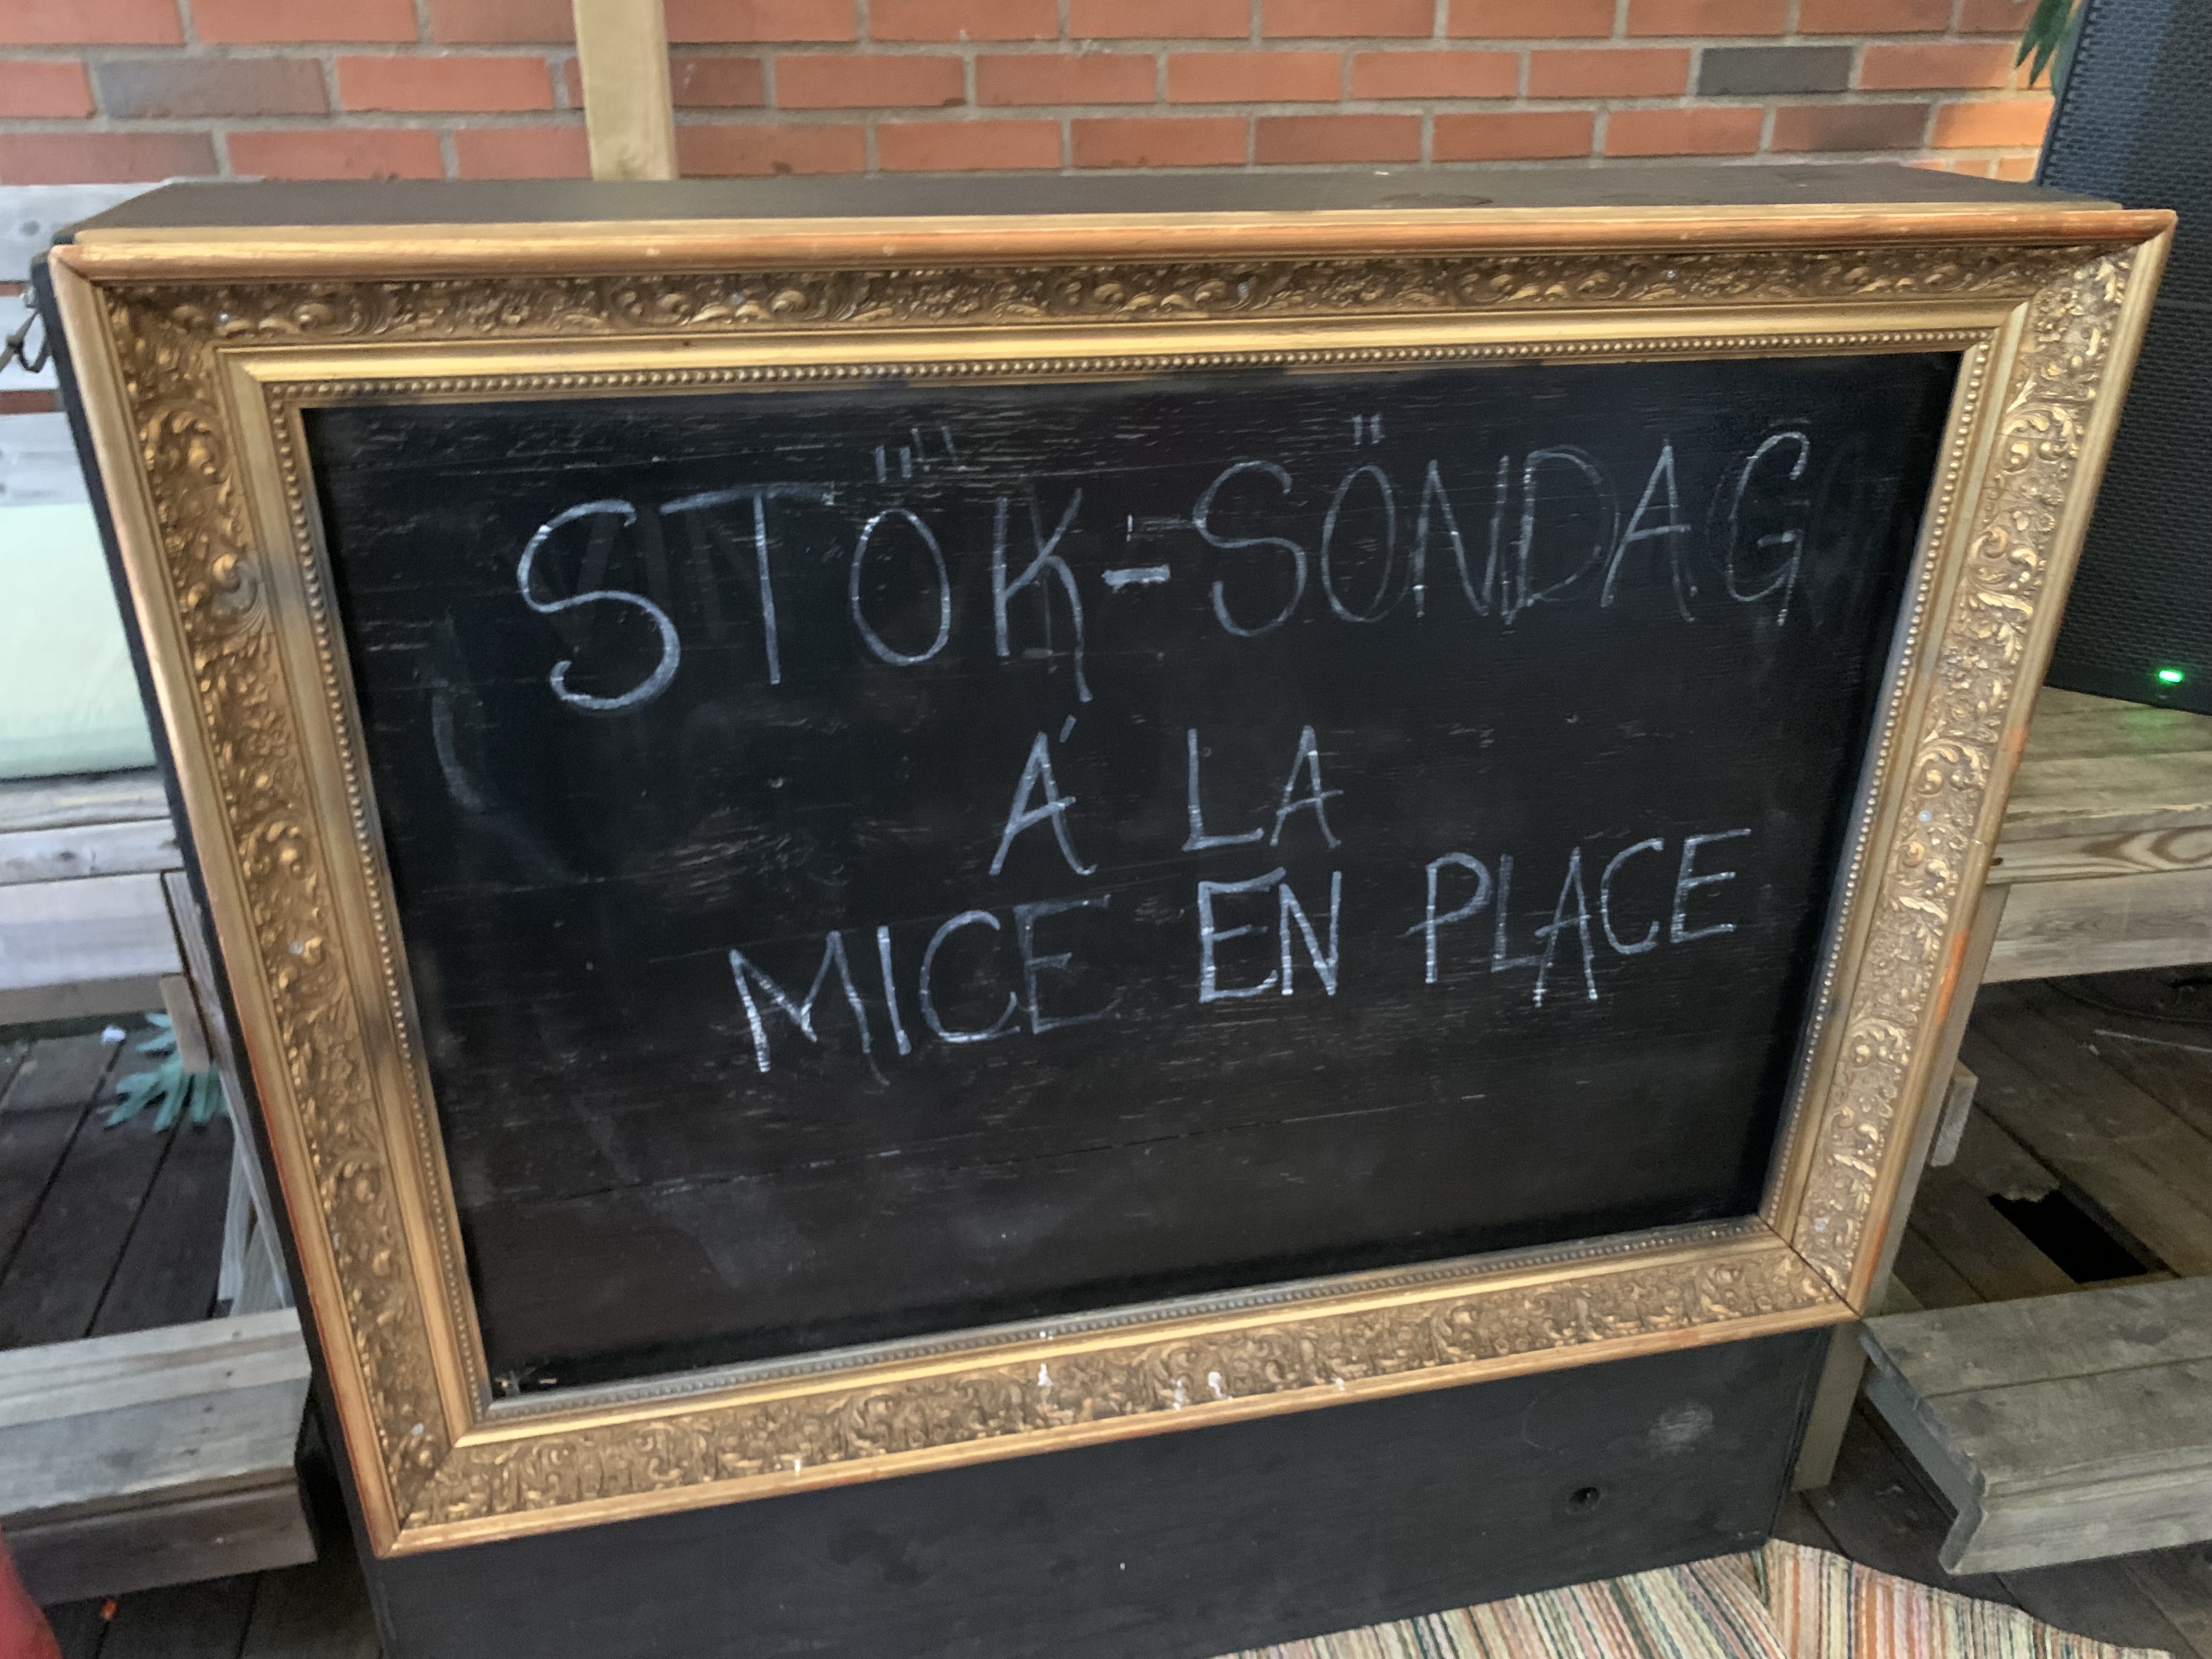 STÖK-SÖNDAG
Á LA
MICE EN PLACE